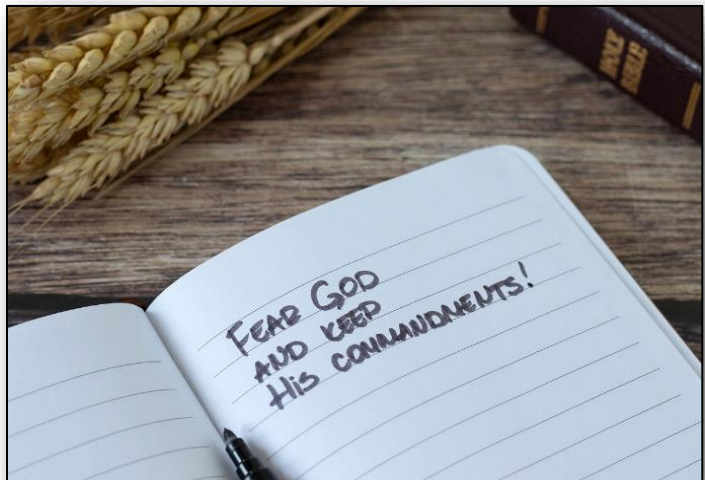 HOLY
BIBLE
FEAR GOD
AND KEEP
HIS COMMANDMENTS!